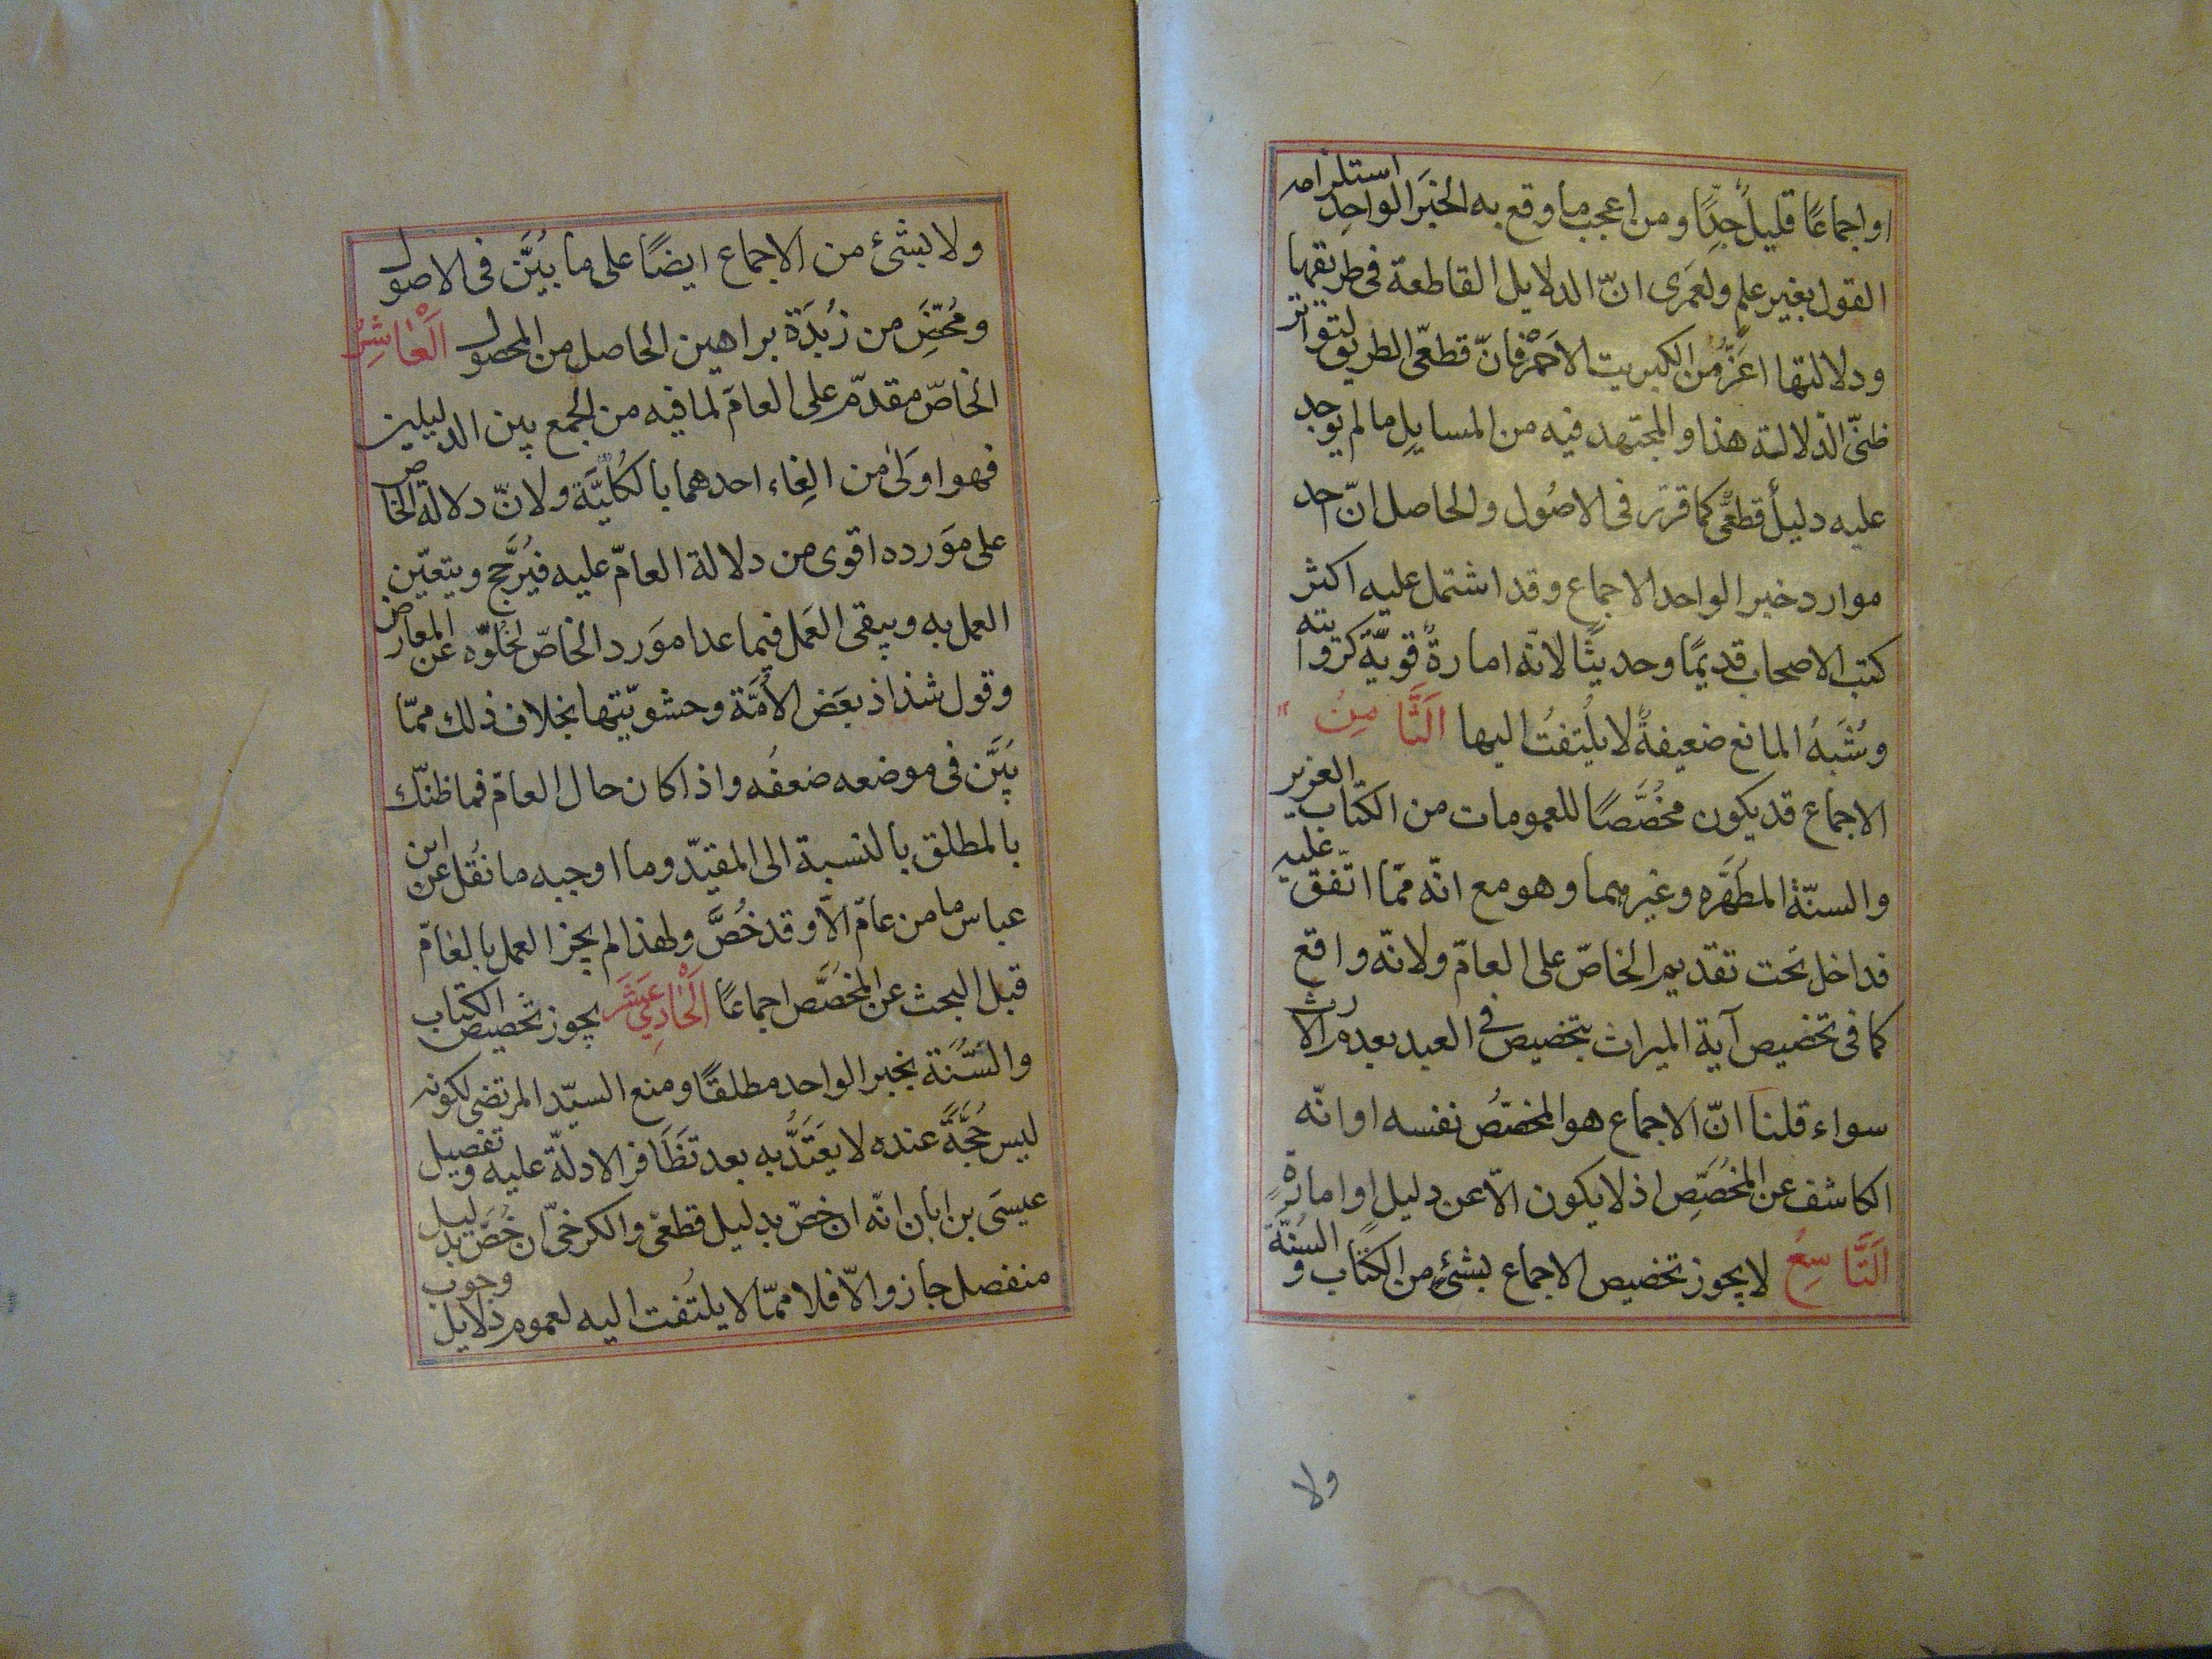 او اجماعًا قليلٌ جدًّا ومن اعجب ما وقع به الخبر الواحد استلزامه
القول بغير علم ولعمرى انّ الدلايل القاطعة فى طريقها
ودلالتها اعَزُّ من الكبريت الاحمر فانّ قطعىّ الطريق لتواتر
ظنّى الدّلالة هذا والمجتهد فيه من المسايل ما لم يوجد
عليه دليلٌ قطعىٌّ كما قرّر فى الاصُول والحاصل انّ احد
موارد خبر الواحد الاجماع وقد اشتمل عليه اكثر
كتب الاصحاب قديمًا وحديثًا لانّه امارةٌ قويّةٌ كروايته
وشُبَهُ المانع ضعيفةٌ لا يُلتفتُ اليها اَلثَّامِنُ
الاجماع قد يكون مخصّصًا للعمومات من الكتاب العزيز
والسنّة المطهّره وغيرهما وهو مع انّه ممّا اتّفق عليه
فداخل تحت تقديم الخاصّ على العامّ ولانّه واقع
كما فى تخصيص آية الميراث بتخصيص فى العبد بعدم الارث
سواء قلنا انّ الاجماع هو المخصّصُ نفسه او انّه
الكاشف عن المخصِّص اذ لا يكون الاّ عن دليل او امارةٍ
اَلتَّاسِعُ لا يجوز تخصيص الاجماع بشئٍ من الكتاب والسنّة
ولا
ولا بشئ من الاجماع ايضًا على ما بُيِّن فى الاصول
من زُبدَة براهين الحاصل من المحصول اَلْعاشِرُ
الخاصّ مقدّم على العامّ لما فيه من الجمع بين الدليلين
فهو اولَى من الغاء احدهما بالكُلّيّة ولانّ دلالة الخاص
على موَرده اقوى من دلالة العامّ عليه فيُرَجَّح ويتعيّن
العمل به ويبقى العَمل فيما عدا موَرد الخاصّ لخُلوّه عن المعارض
وقول شذاذ بعَض الاُمَّة وحشويّتها بخلاف ذلك ممّا
بُيّن فى موضعه ضعفُه واذا كان حال العامّ فما ظنّك
بالمطلق بالنسبة الى المقيّد وما اوجبه ما نُقل عن ابن
عباس ما من عامّ الاّ وقد خُصَّ ولهذا لم يجز العمل بالعامّ
قبل البحث عن المخصّص اجماعًا اَلْحادِي عَشَر يجوز تخصيص الكتاب
والسُّنَّة بخبر الواحد مطلقًا ومنع السيّد المرتضى لكونه
ليس حُجَّةً عنده لا يَعْتَدُّ به بعد تَظَافر الادلّة عليه وتفصيل
عيسَى بن ابان انّه ان خصّ بدليل قطعىّ والكرخىّ ان خُصّ بدليل
منفصل جاز والاّ فلا ممّا لا يلتُفت اليه لعموم دلايل وجوب